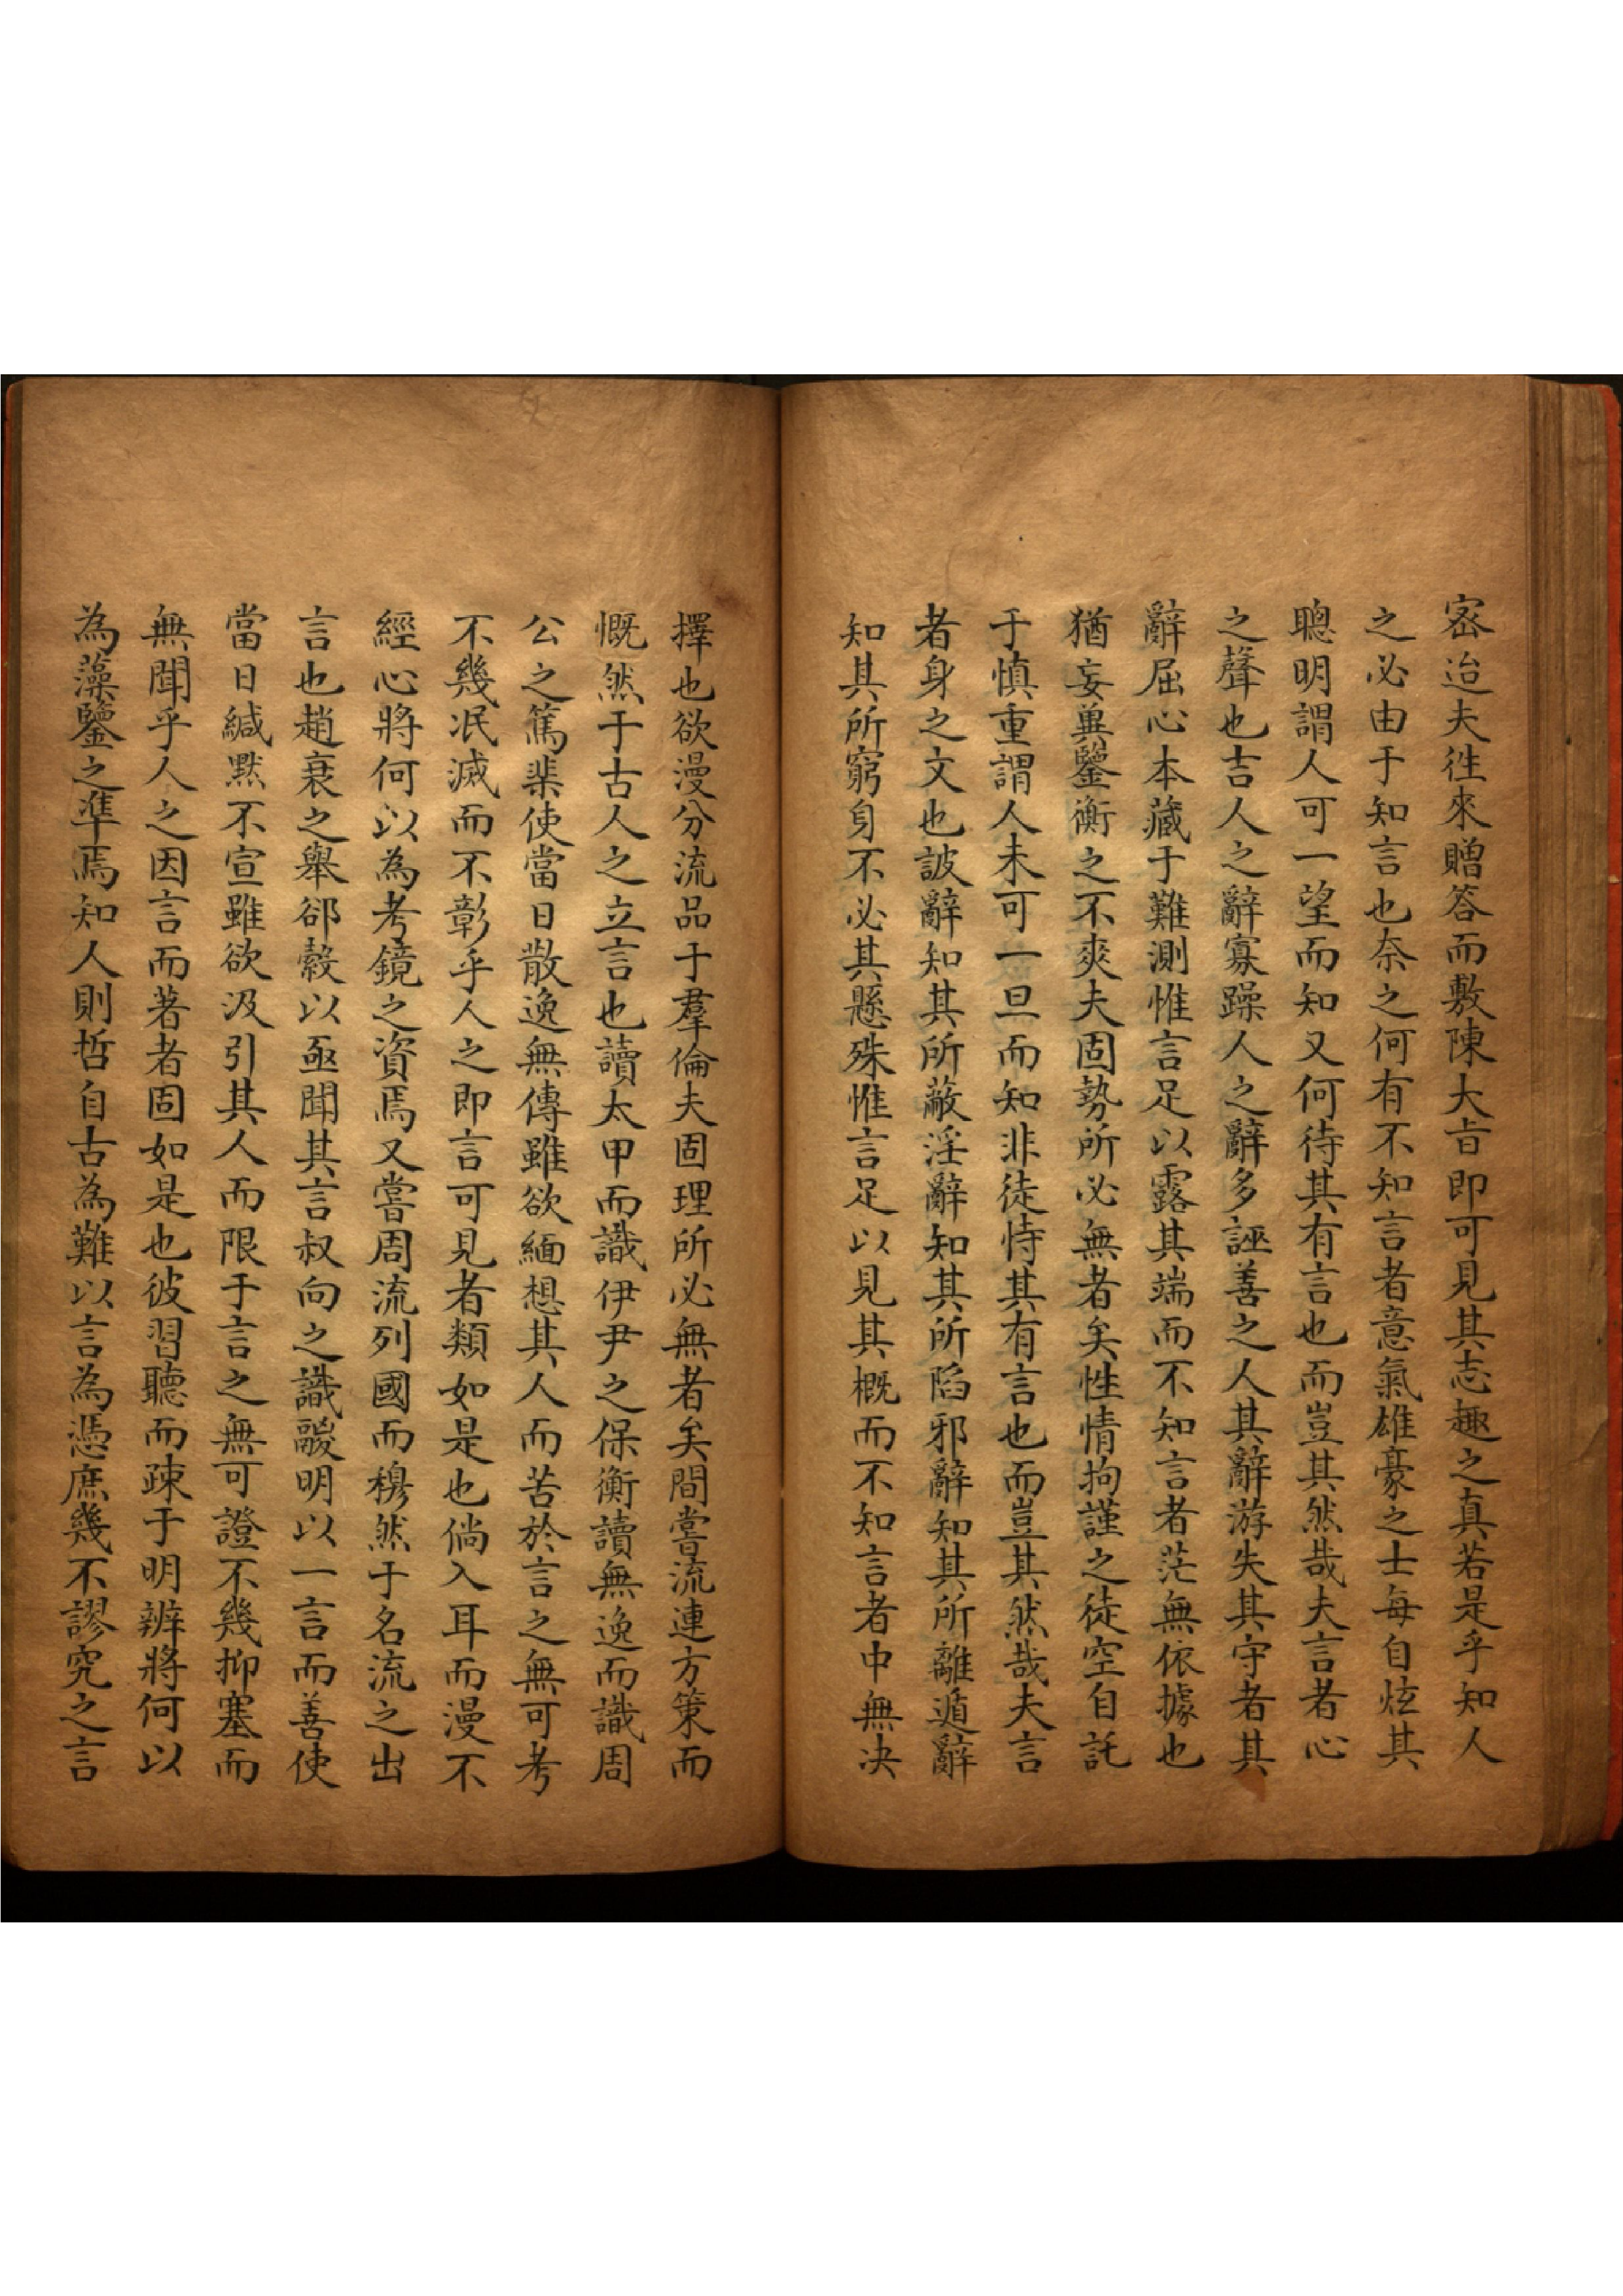 密迨夫徃來贈答而敷陳大旨即可見其志趣之真若是乎知人
之必由于知言也奈之何有不知言者意氣雄豪之士每自炫其
聰明謂人可一望而知又何待其有言也而豈其然哉夫言者心
之聲也吉人之辭寡躁人之辭多誣善之人其辭游失其守者其
辭屈心本藏于難測惟言足以露其端而不知言者茫無依據也
猶妄兾鑒衡之不爽夫固勢所必無者矣性情拘謹之徒空自託
于慎重謂人未可一旦而知非徒恃其有言也而豈其然哉夫言
者身之文也詖辭知其所蔽淫辭知其所陷邪辭知其所離遁辭
知其所窮身不必其懸殊惟言足以見其概而不知言者中無决
擇也欲漫分流品于羣倫夫固理所必無者矣間嘗流連方策而
慨然于古人之立言也讀太甲而識伊尹之保衡讀無逸而識周
公之篤棐使當日散逸無傳雖欲緬想其人而苦於言之無可考
不幾泯滅而不彰乎人之即言可見者類如是也倘入耳而漫不
經心將何以為考鏡之資焉又嘗周流列國而穆然于名流之出
言也趙衰之舉郤縠以亟聞其言叔向之識鬷明以一言而善使
當日緘默不宣雖欲汲引其人而限于言之無可證不幾抑塞而
無聞乎人之因言而著者固如是也彼習聽而踈于明辨將何以
為藻鑒之準焉知人則哲自古為難以言為憑庶幾不謬究之言